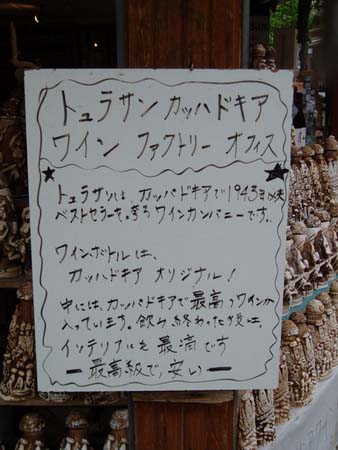 トュラサン カッハドキア
ワイン ファクトリー オフィス
トュラサンは カッパドキアで1943年以来
ベストセラーを誇るワインカンパニーです。
ワインボトルは、
カッハドキア オリジナル!
中には、カッパドキアで最高のワインが
入っています。飲み終わった後は、
インテリアにも最適です
ー最高級で、安いー